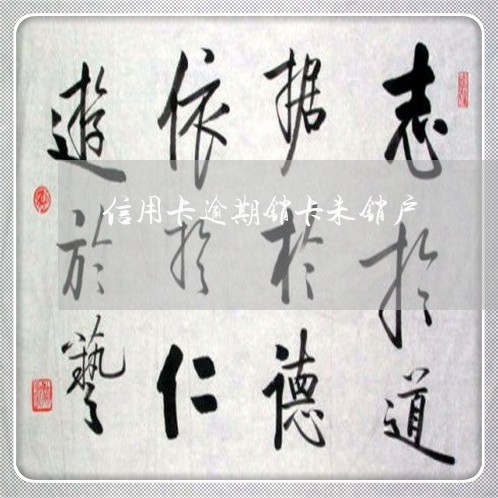 志於道
据於德
依於仁
遊於藝
信用卡逾期销卡未销户